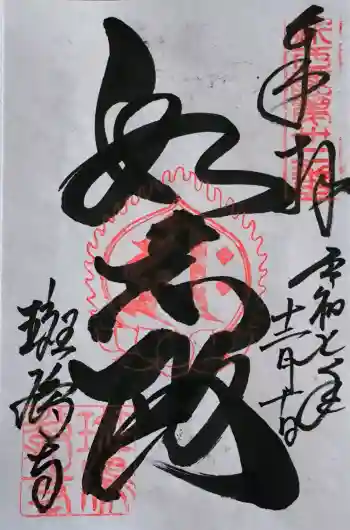 奉拝
令和七年
十二月十日
如意殿
斑鳩寺